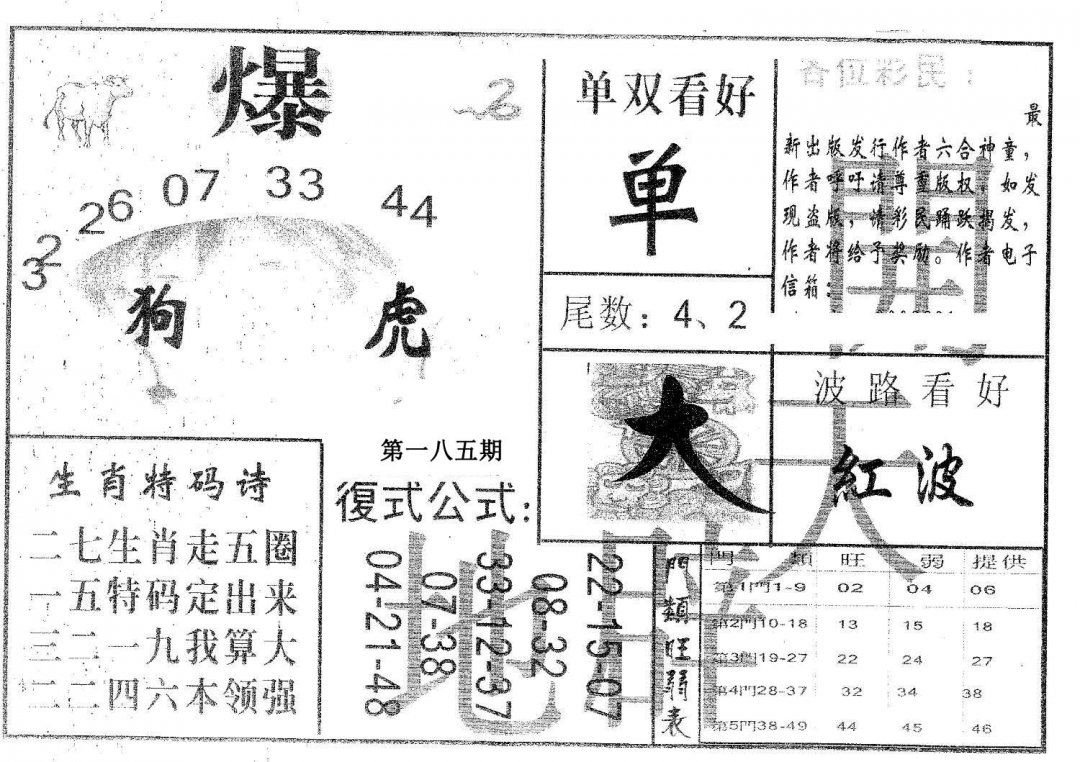 爆
26 07 33 44
32
狗 虎
单双看好
单
尾数：4、2
各位彩民：
最
新出版发行作者六合神童，
作者呼吁请尊重版权，如发
现盗版，情彩民踊跃揭发，
作者将给予奖励。作者电子
信箱：
大
波路看好
紅波
生肖特码诗
二七生肖走五圈
一五特码定出来
三二一九我算大
二二四六本领强
第一八五期
復式公式：
04-21-48
07-38
33-12-37
08-32
22-15-07
門類旺弱表
門類 旺 弱 提供
第1門1-9 02 04 06
第2門10-18 13 15 18
第3門19-27 22 24 27
第4門28-37 32 34 38
第5門38-49 44 45 46